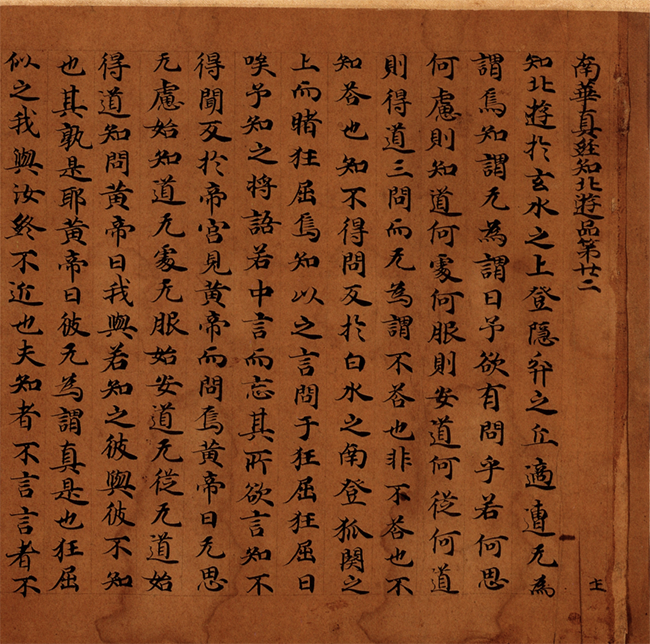 南華真經知北遊品第廿二
知北遊於玄水之上登隱弅之丘適遭无為
謂焉知謂无為謂曰予欲有問乎若何思
何慮則知道何處何服則安道何從何道
則得道三問而无為謂不荅也非不荅也不
知荅也知不得問反於白水之南登狐闋之
上而睹狂屈焉知以之言問于狂屈狂屈曰
唉予知之将語若中言而忘其所欲言知不
得聞反於帝宮見黃帝而問焉黃帝曰无思
无慮始知道无處无服始安道无從无道始
得道知問黃帝曰我與若知之彼與彼不知
也其孰是耶黃帝曰彼无為謂真是也狂屈
似之我與汝終不近也夫知者不言言者不